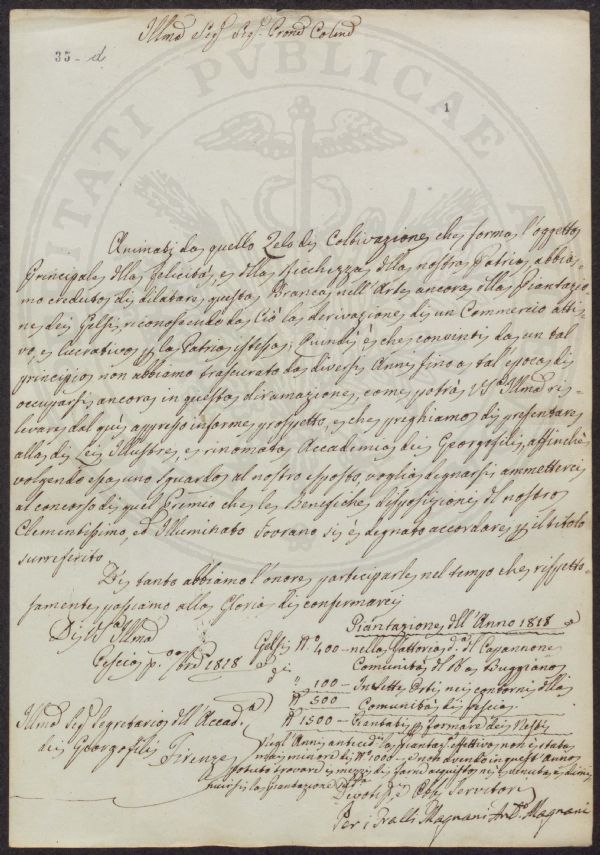 Illmo Sigr Sigr Prone Colmo
35 - d
1
PUBLICAE
Animati da quello Zelo di Coltivazione che forma l'oggetto
principale della felicità, e della Ricchezza della nostra Patria, abbia-
mo creduto di dilatare questa Branca nell'Arte ancora della Piantagio
ne dei Gelsi, riconoscendo da Ciò la derivazione di un Commercio atti-
vo, e lucrativo p la Patria istessa; Quindi è che convinti da un tal
principio non abbiamo trascurato da diversi Anni fino a tal'epoca di
occuparsi ancora in questa diramazione, come potrà VS Illma ri-
levare dal quì appresso informe prospetto, e che preghiamo di presentare
alla di Lei Illustre, e rinomata Accademia dei Georgofili, affinché
volgendo essa uno sguardo al nostro esposto, voglia degnarsi ammetterci
al concorso di quel Premio che le Benefiche disposizioni del nostro
Clementissimo, ed Illuminato Sovrano si è degnato accordare p il titolo
surreferito
Di tanto abbiamo l'onore parteciparle nel tempo che rispetto-
samente passiamo alla Gloria di confermarci
Di VS Illma
Pescia p.o 1818
Piantazione dell'Anno 1818
Gelsi No 400 - nella Fattoria del Capannone
Comunità di Buggiano
di
" 100 - In sette Orti nei contorni della
No 500 Comunità di Pescia
No 1500 - Piantati p formare dei
Illmo Sigr Segretario dell'Accad.a
dei Georgofili
Firenze
Negl'Anni anteced. la piantaz. effettiva non è stata
mai minore di No 1000 - e non avendo in quest'Anno
potuto trovare mezzo di farne acquisto
la piantazione
Devoti Servitori
Per i Fratli Magnani Ando Magnani